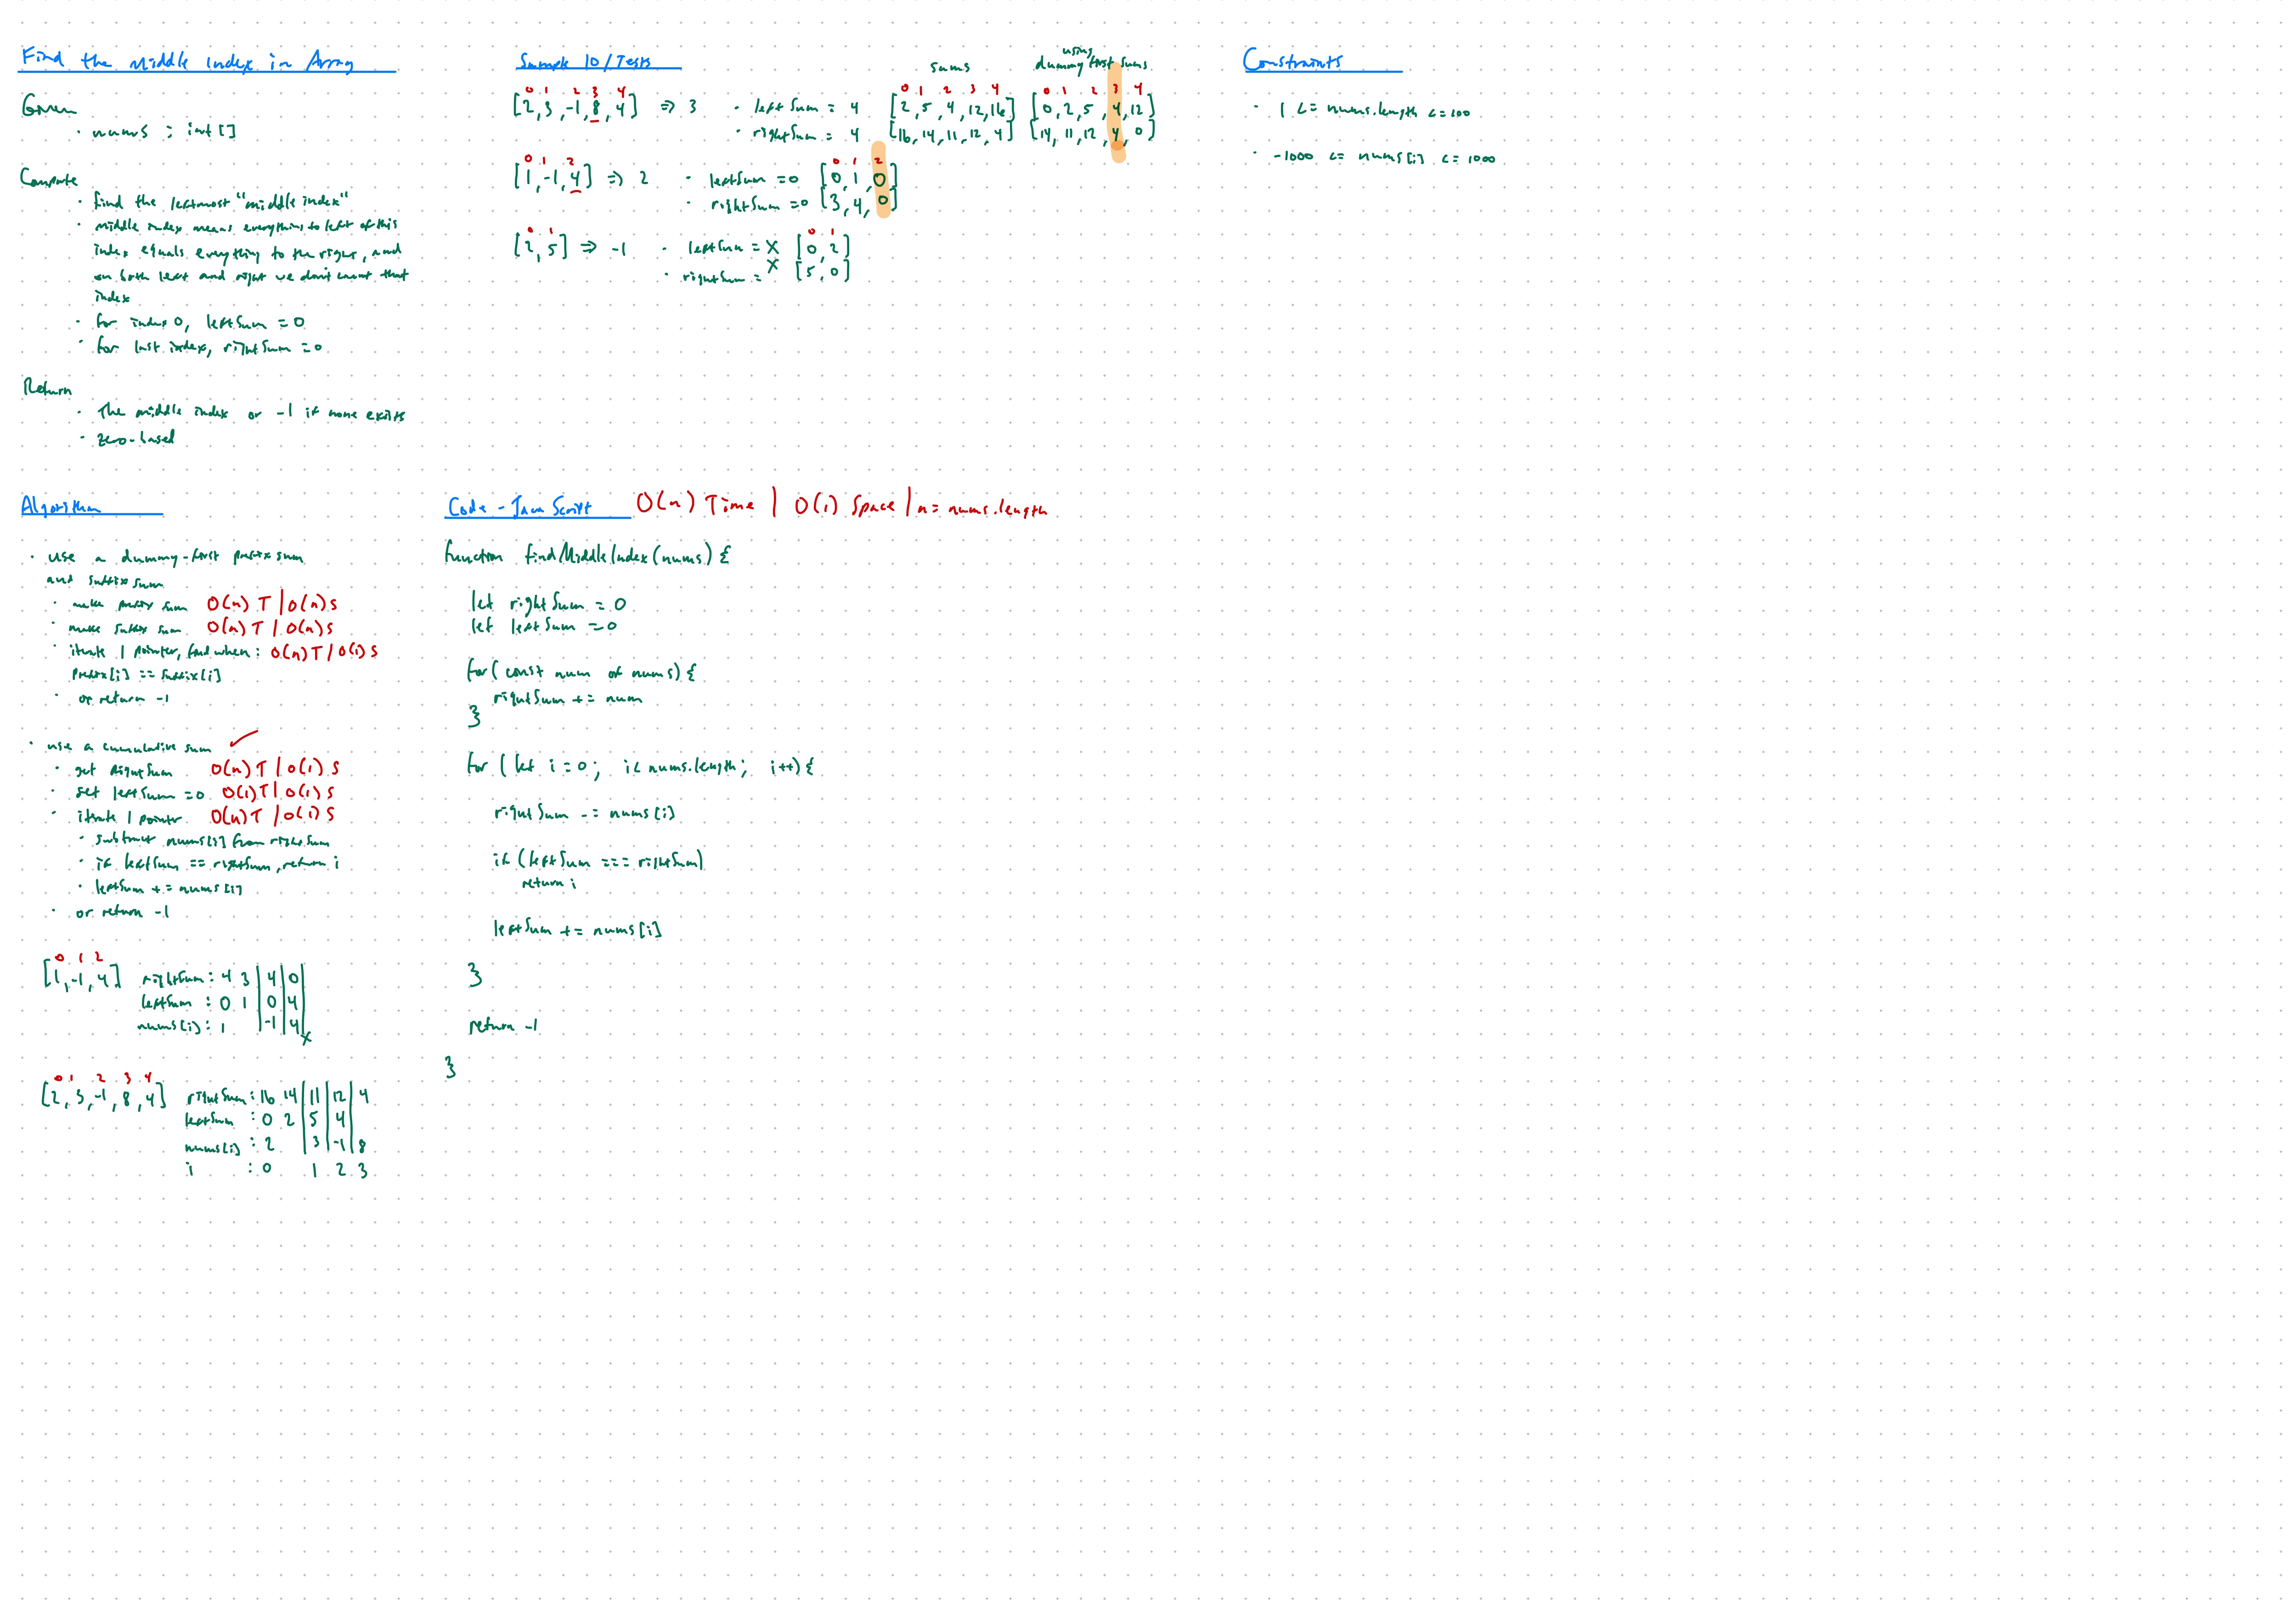 Find the Middle Index in Array
Given
· nums : int[]
Compute
· find the leftmost "middle index"
· middle index means everything to left of this
index equals everything to the right, and
on both left and right we don't count that
index
· for index 0, leftSum = 0
· for last index, rightSum = 0
Return
· The middle index or -1 if none exists
· zero-based
Sample IO/Tests
sums
using
dummy first sums
0 1 2 3 4
[2, 3, -1, 8, 4] => 3
· leftSum = 4
· rightSum = 4
0 1 2 3 4
[2, 5, 4, 12, 16]
[16, 14, 11, 12, 4]
0 1 2 3 4
[0, 2, 5, 4, 12]
[14, 11, 12, 4, 0]
0 1 2
[1, -1, 4] => 2
· leftSum = 0
· rightSum = 0
0 1 2
[0, 1, 0]
[3, 4, 0]
0 1
[2, 5] => -1
· leftSum = X
· rightSum = X
0 1
[0, 2]
[5, 0]
Constraints
· 1 <= nums.length <= 100
· -1000 <= nums[i] <= 1000
Algorithm
· use a dummy-first prefix sum
and suffix sum
· make prefix sum O(n) T | O(n) S
· make suffix sum O(n) T | O(n) S
· iterate 1 pointer, find when: O(n) T | O(1) S
prefix[i] == suffix[i]
· or return -1
· use a cumulative sum ✓
· get rightSum O(n) T | O(1) S
· set leftSum = 0 O(1) T | O(1) S
· iterate 1 pointer O(n) T | O(1) S
· subtract nums[i] from rightSum
· if leftSum == rightSum, return i
· leftSum += nums[i]
· or return -1
0 1 2
[1, -1, 4]
rightSum : 4 3 | 4 | 0 |
leftSum : 0 1 | 0 | 4 |
nums[i] : 1 | -1 | 4 |
x
0 1 2 3 4
[2, 3, -1, 8, 4]
rightSum : 16 14 | 11 | 12 | 4
leftSum : 0 2 | 5 | 4 |
nums[i] : 2 | 3 | -1 | 8
i : 0 1 2 3
Code - JavaScript O(n) Time | O(1) Space | n = nums.length
function findMiddleIndex(nums) {
let rightSum = 0
let leftSum = 0
for (const num of nums) {
rightSum += num
}
for (let i = 0; i < nums.length; i++) {
rightSum -= nums[i]
if (leftSum === rightSum)
return i
leftSum += nums[i]
}
return -1
}